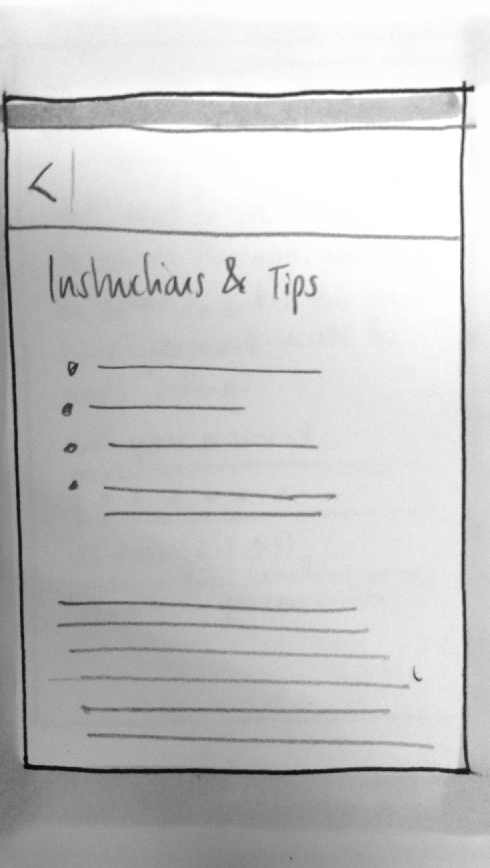 Instructions & Tips